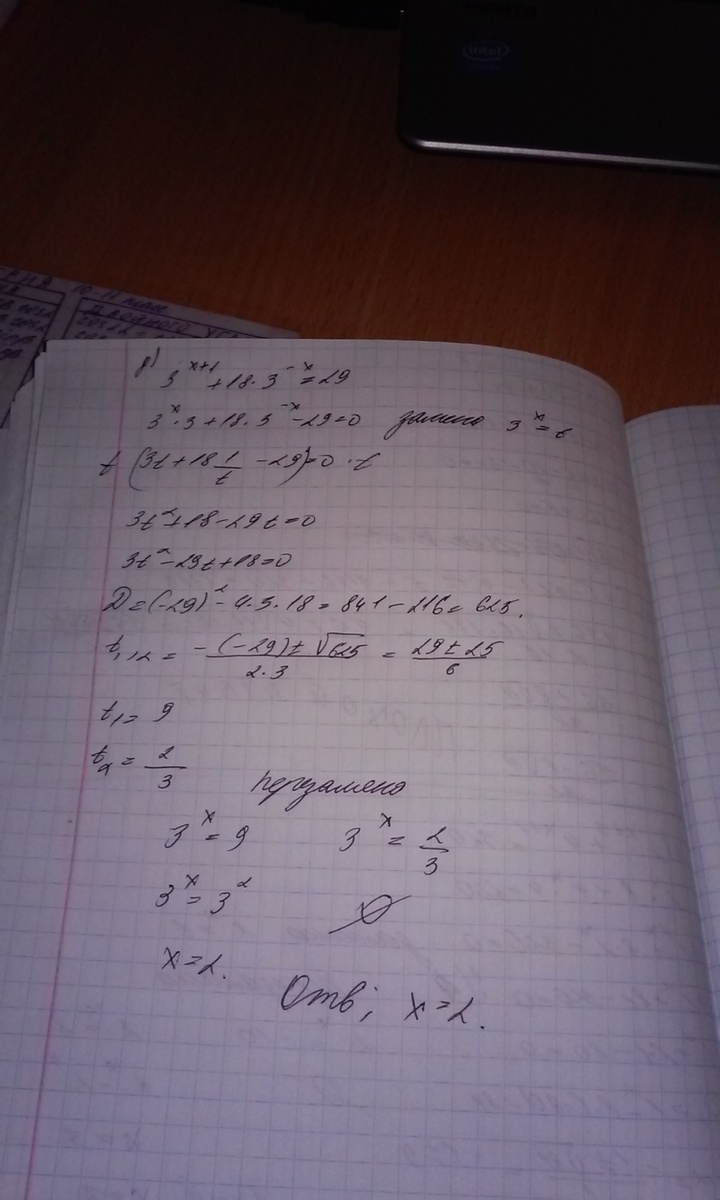 intel
д)
3^(x+1) + 18·3^(-x) = 29
3^x·3 + 18·3^(-x) - 29 = 0 замена 3^x = t
t (3t + 18 1/t - 29) = 0 ·t
3t² + 18 - 29t = 0
3t² - 29t + 18 = 0
D = (-29)² - 4·3·18 = 841 - 216 = 625.
t₁,₂ = (-(-29) ± √625)/(2·3) = (29 ± 25)/6
t₁ = 9
t₂ = 2/3
3^x = 9 3^x = 2/3
3^x = 3² ∅
x = 2.
Отв; x = 2.